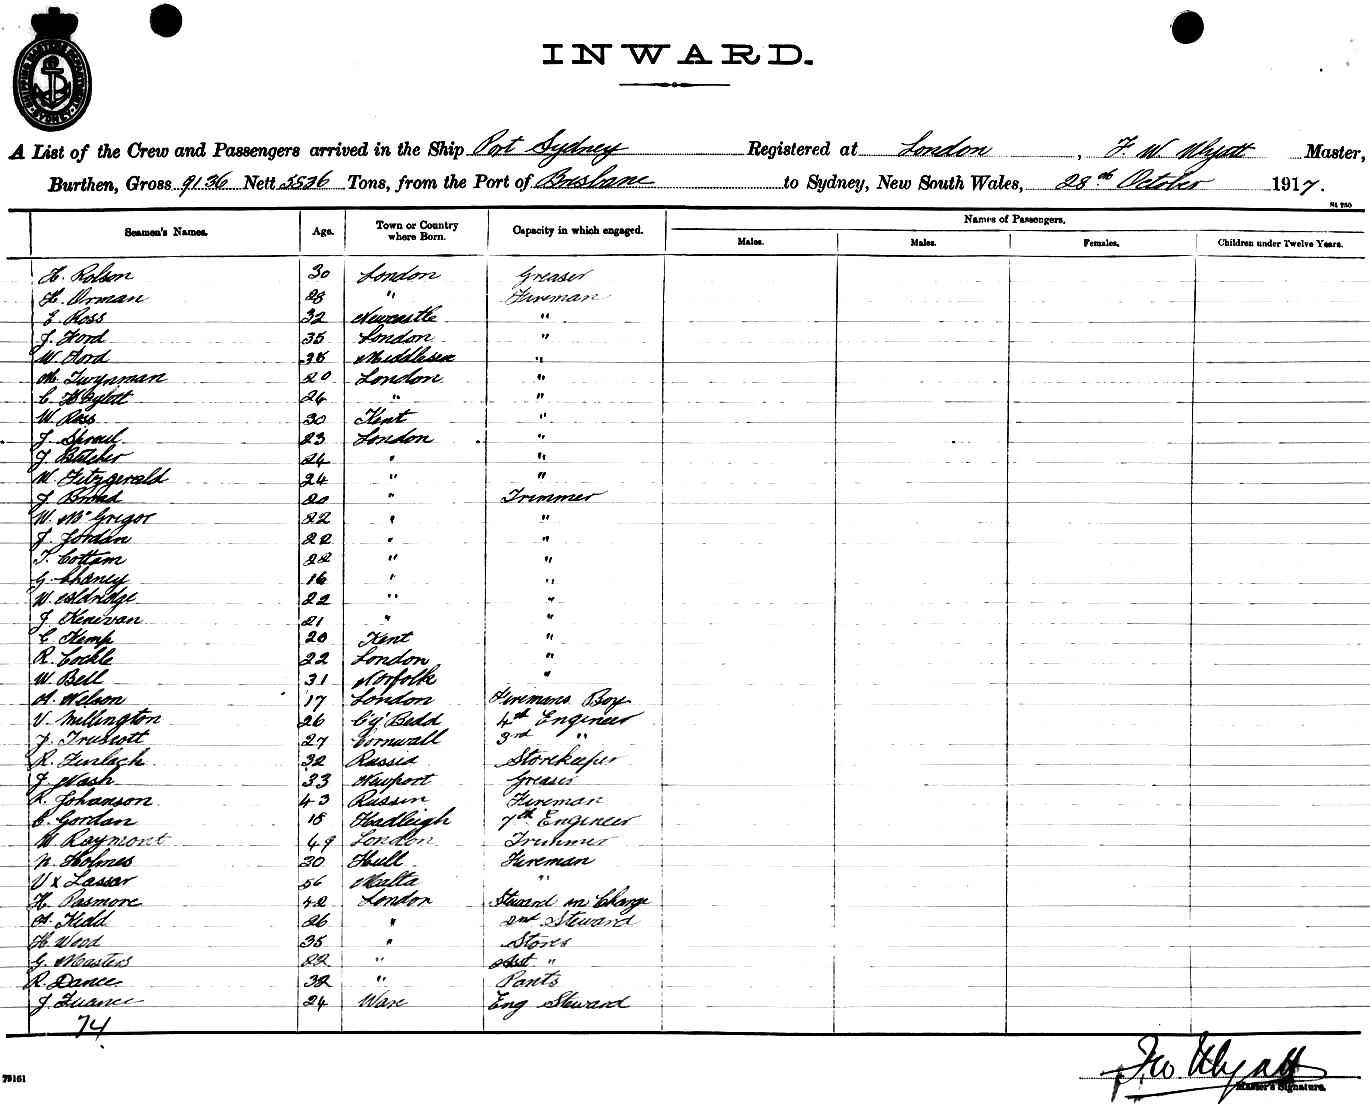 SHIPPING MASTERS DEPARTMENT SYDNEY
INWARD.
A List of the Crew and Passengers arrived in the Ship Port Sydney Registered at London, F. W Wyatt Master,
Burthen, Gross 9136 Nett 5536 Tons, from the Port of Brisbane to Sydney, New South Wales, 28th October 1917.
St 750
Seamen's Names. Age. Town or Country where Born. Capacity in which engaged. Names of Passengers.
Males. Males. Females. Children under Twelve Years.
H. Rolson 30 London Greaser
H. Orman 28 " Fireman
E Ross 32 Newcastle "
J. Ford 35 London "
W. Ford 38 Middlesex "
M. Twynman 20 London "
C 24 " "
W Ross 30 Kent "
J. Sproul 23 London "
J. Butcher 24 " "
W. Fitzgerald 24 " "
J Broad 20 " Trimmer
W. McGrigor 22 " "
J. Jordan 22 " "
T. Cottam 22 " "
G. Chaney 16 " "
W. Aldridge 22 " "
J Kenevan 21 " "
C Kemp 20 Kent "
R. Cockle 22 London "
W Bell 31 Norfolk "
A. Nelson 17 London Firemans Boy
V. Millington 26 Bedd 4th Engineer
J. Truscott 27 Cornwall 3rd "
R. Furlach 32 Russia Storekeeper
J Nash 33 Newport Greaser
R. Johanson 43 Russia Fireman
C. Gordan 18 Hadleigh 7th Engineer
W. Raymont 49 London Trimmer
N. Holmes 30 Hull Fireman
V x Lassar 56 Malta "
H. Pasmore 42 London Steward in Charge
A. Kidd 26 " 2nd Steward
H. Wood 35 " Stores
G. Masters 22 " Asst "
R. Dance 32 " Pants
J. 24 Ware Eng Steward
74
F.W. Wyatt
Master's Signature.
79161